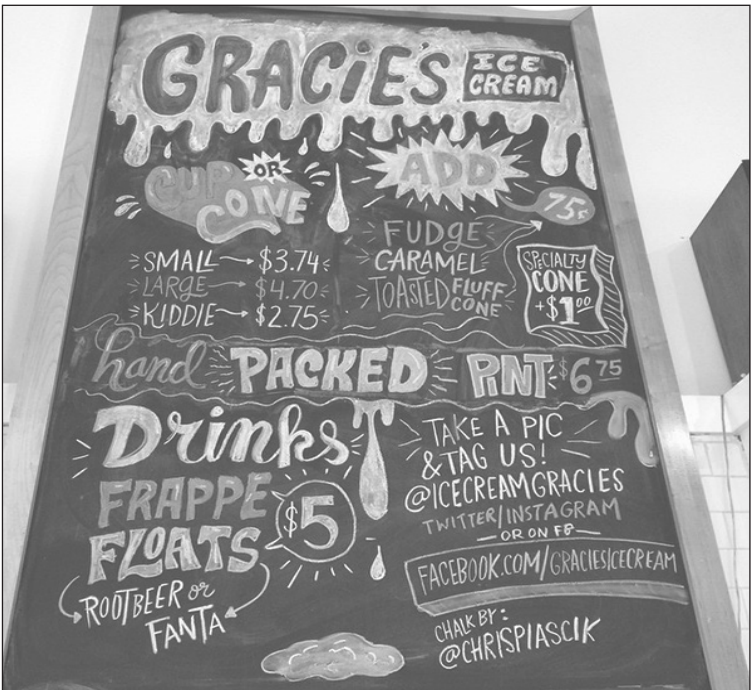 GRACIE'S ICE CREAM
CUP OR CONE
SMALL → $3.74
LARGE → $4.70
KIDDIE → $2.75
ADD
75¢
FUDGE
CARAMEL
TOASTED FLUFF CONE
SPECIALTY
CONE
+$1.00
hand PACKED PINT $6.75
Drinks
FRAPPE
FLOATS
$5
ROOTBEER or
FANTA
TAKE A PIC
& TAG US!
@ICECREAMGRACIES
TWITTER/INSTAGRAM
— OR ON FB —
FACEBOOK.COM/GRACIESICECREAM
CHALK BY:
@CHRISPIASCIK